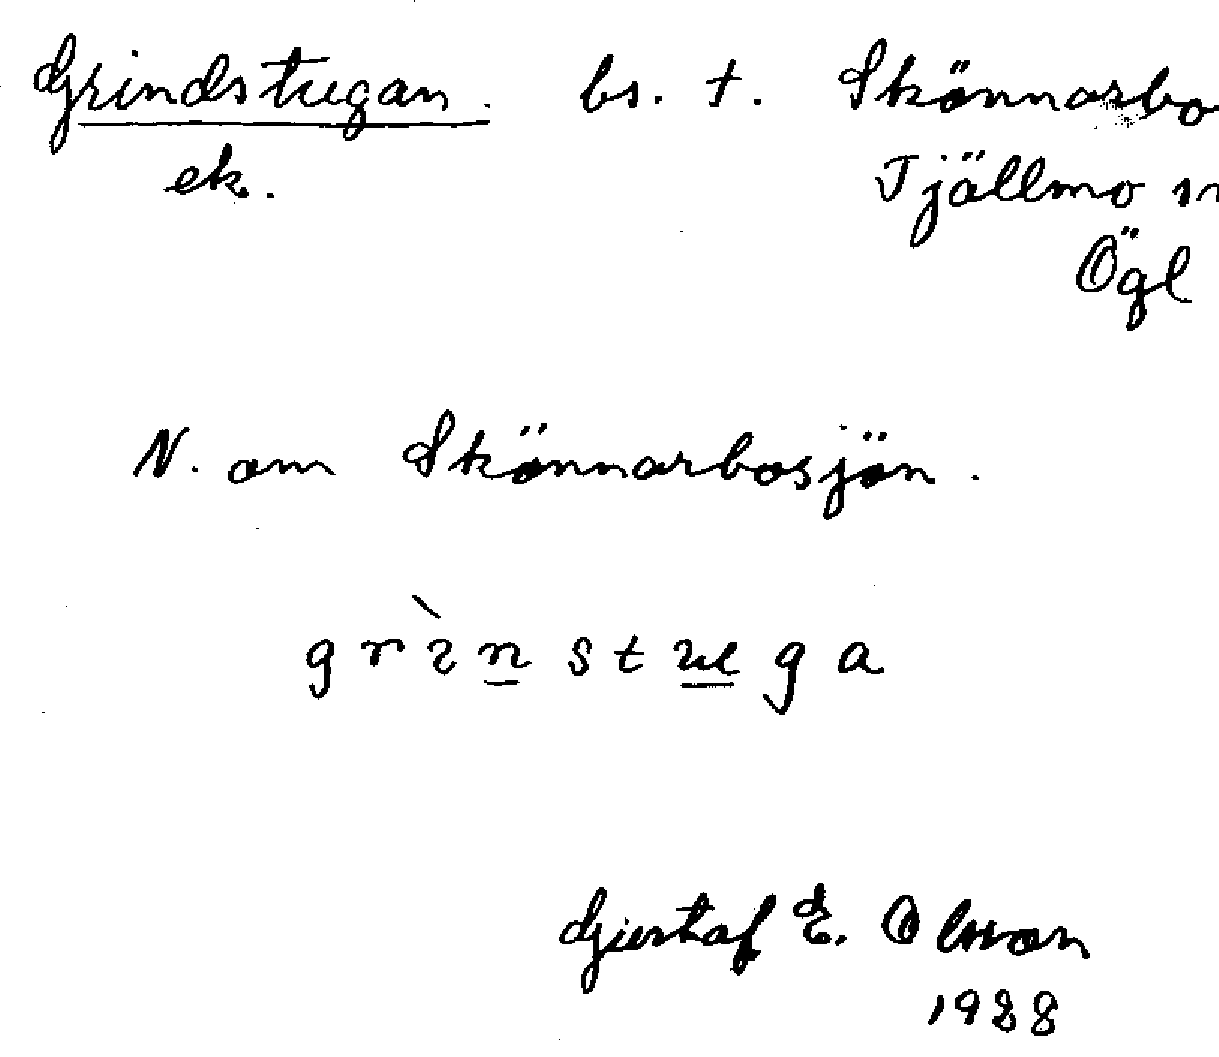 Grindstugan. bs. t. Skönnarbo
ek. Tjällmo sn
Ögl
N. om Skönnarbosjön.
grὶn̲stu̲ga
Gustaf E. Olsson
1988